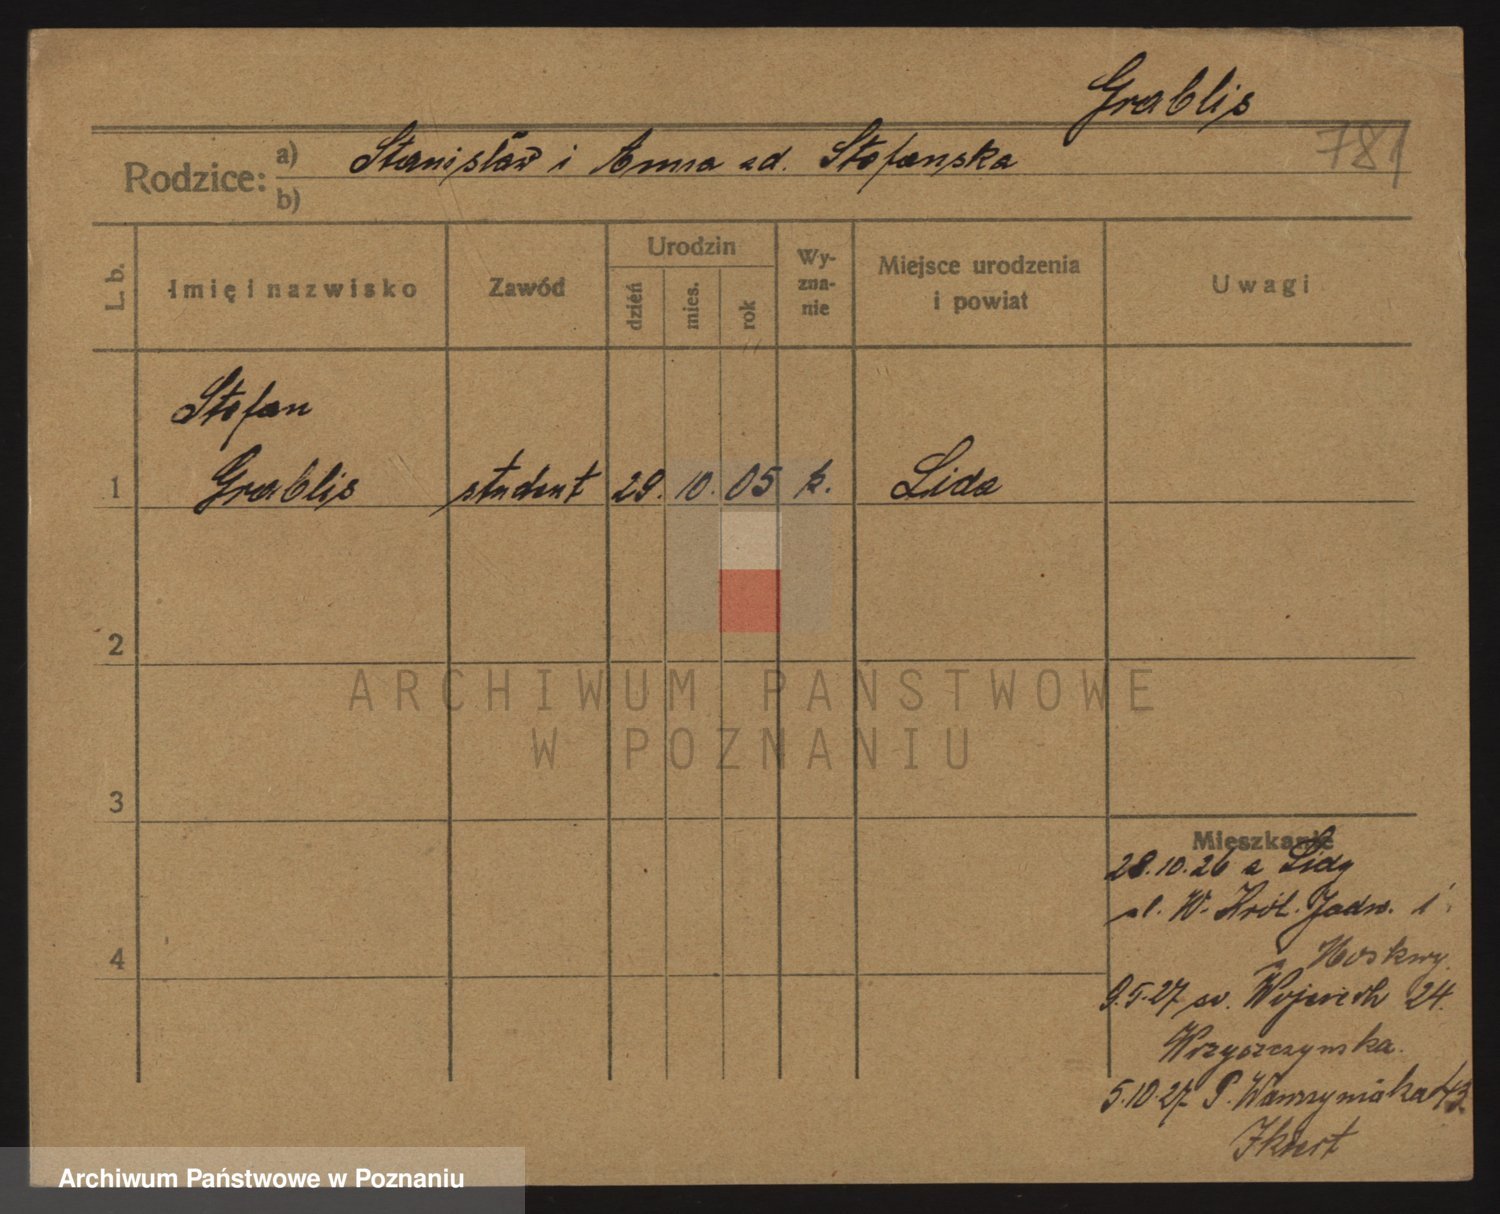 Grablis
781
Rodzice: a) Stanisław i Anna zd. Stefanska
b)
L. b.
Imię i nazwisko
Zawód
Urodzin
dzień
mies.
rok
Wy-
zna-
nie
Miejsce urodzenia
i powiat
Uwagi
Stefan
1 Grablis student 29. 10. 05 k. Lida
2
ARCHIWUM PAŃSTWOWE
W POZNANIU
3
Mieszkanie
28.10.26 z Lidy
pl. W. Król. Jadw. 1
Moskwy
4
9.5.27 św. Wojciech 24.
5.10.27 P. Wawrzyniaka 43
Archiwum Państwowe w Poznaniu